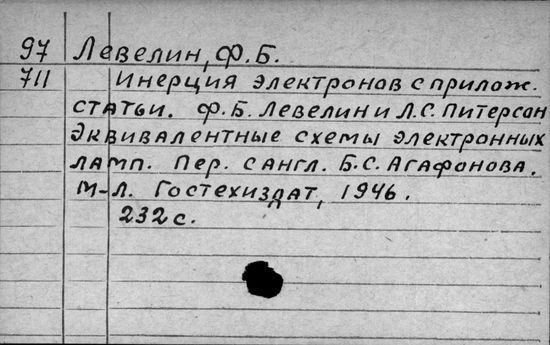 97 Левелин, Ф.Б.
711 Инерция электронов с прилож.
статьи. Ф.Б. Левелин и Л.С. Питерсон
Эквивалентные схемы электронных
ламп. Пер. с англ. Б.С. Агафонова.
М-Л. Гостехиздат, 1946.
232 с.